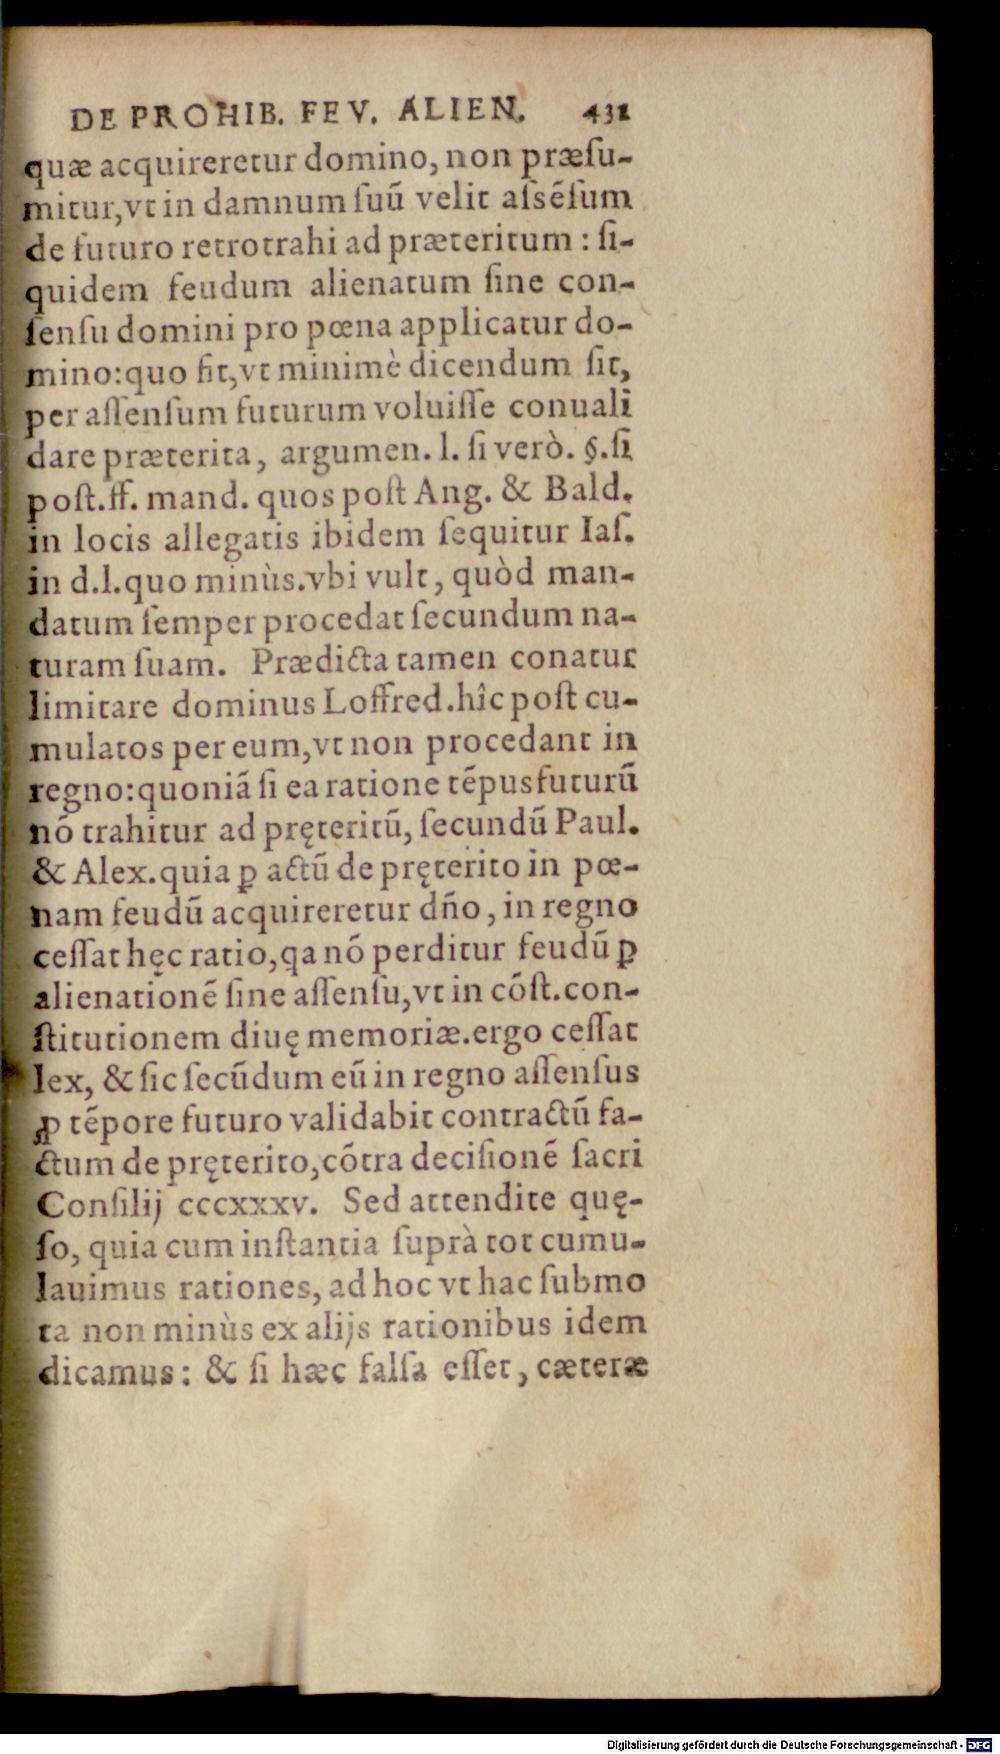 DE PROHIB. FEV. ALIEN. 431
quæ acquireretur domino, non præſu-
mitur,vt in damnum ſuũ velit aſsẽſum
de futuro retrotrahi ad præteritum : ſi-
quidem feudum alienatum ſine con-
ſenſu domini pro pœna applicatur do-
mino:quo fit,vt minimè dicendum ſit,
per aſſenſum futurum voluiſſe conuali
dare præterita, argumen. l. ſi verò. §.ſi
poſt.ff. mand. quos poſt Ang. & Bald.
in locis allegatis ibidem ſequitur Iaſ.
in d.l.quo minùs.vbi vult, quòd man-
datum ſemper procedat ſecundum na-
turam ſuam. Prædicta tamen conatur
limitare dominus Loffred.hîc poſt cu-
mulatos per eum,vt non procedant in
regno:quoniã ſi ea ratione tẽpus futurũ
nõ trahitur ad pręteritũ, ſecundũ Paul.
& Alex.quia ꝑ actũ de pręterito in pœ-
nam feudũ acquireretur dño, in regno
ceſſat hęc ratio,qa nõ perditur feudũ ꝑ
alienationẽ ſine aſſenſu,vt in cõſt.con-
ſtitutionem diuę memoriæ.ergo ceſſat
lex, & ſic ſecũdum eũ in regno aſſenſus
ꝓ tẽpore futuro validabit contractũ fa-
ctum de pręterito,cõtra deciſionẽ ſacri
Conſilij cccxxxv. Sed attendite quę-
ſo, quia cum inſtantia ſuprà tot cumu-
lauimus rationes, ad hoc vt hac ſubmo
ta non minùs ex alijs rationibus idem
dicamus: & ſi hæc falſa eſſet, cæteræ
Digitalisierung gefördert durch die Deutsche Forschungsgemeinschaft - DFG